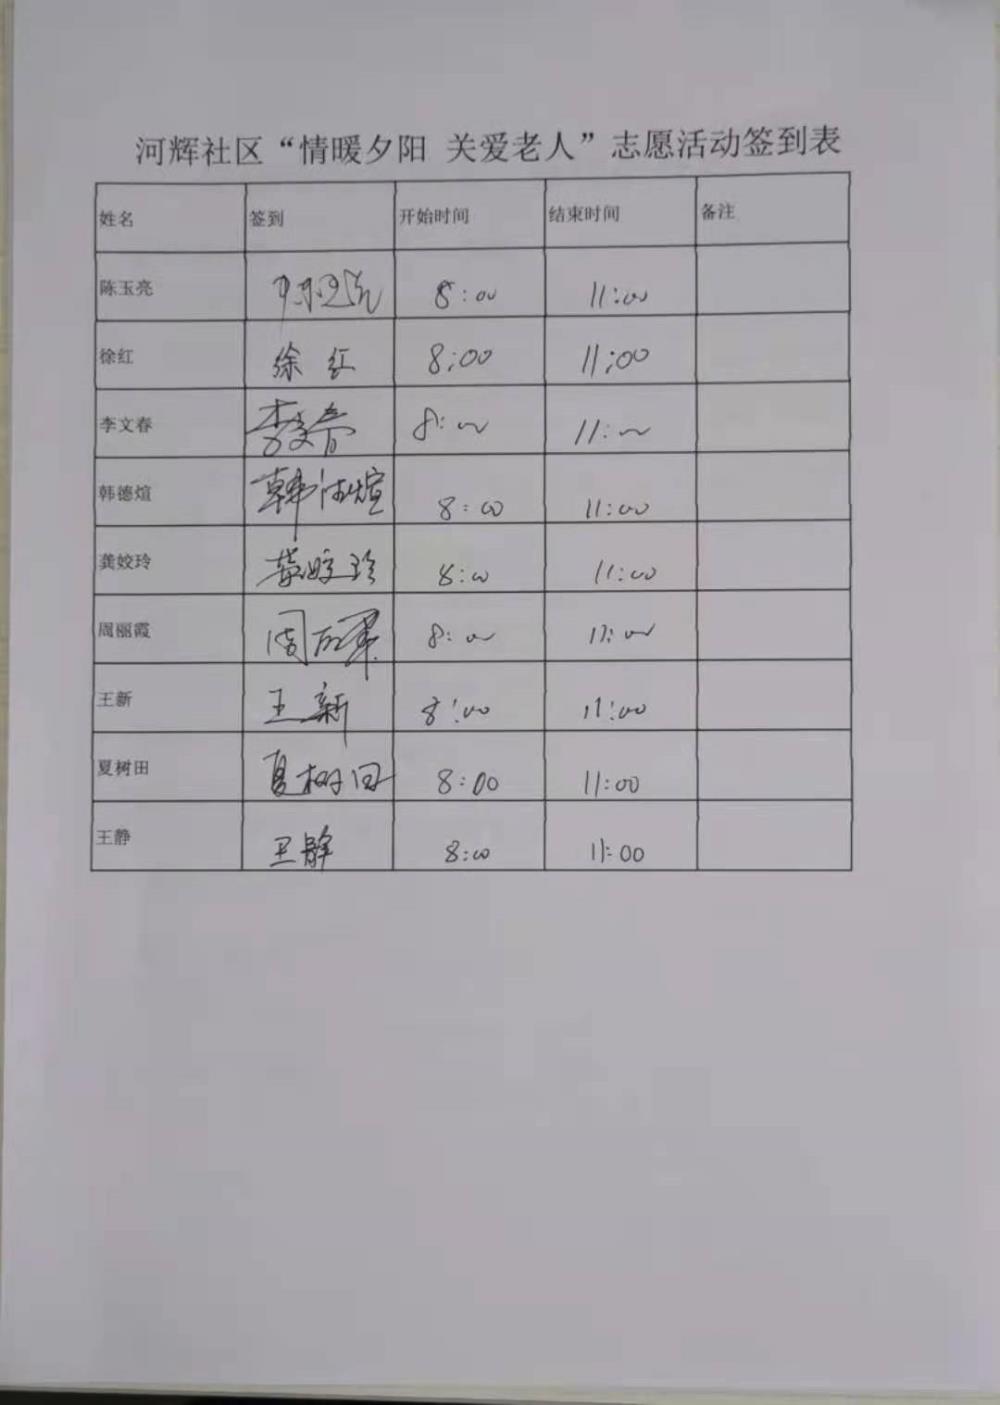 河辉社区“情暖夕阳 关爱老人”志愿活动签到表
姓名 签到 开始时间 结束时间 备注
陈玉亮 陈玉亮 8:00 11:00
徐红 徐红 8:00 11:00
李文春 李文春 8:00 11:00
韩德煊 韩德煊 8:00 11:00
龚姣玲 龚姣玲 8:00 11:00
周丽霞 周丽霞 8:00 11:00
王新 王新 8:00 11:00
夏树田 夏树田 8:00 11:00
王静 王静 8:00 11:00